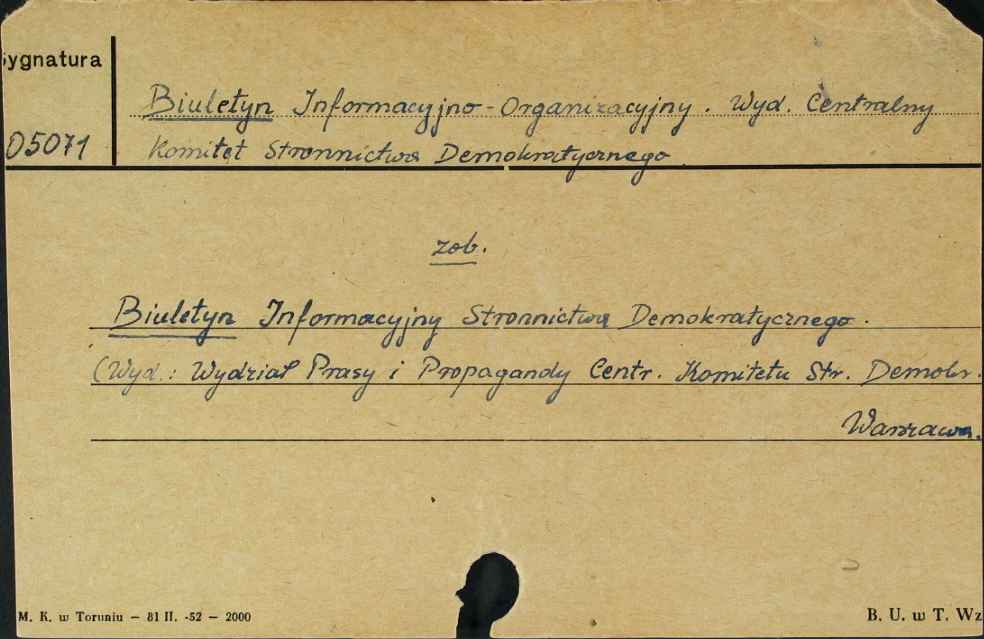 Sygnatura
05071
Biuletyn Informacyjno-Organizacyjny. Wyd. Centralny
Komitet Stronnictwa Demokratycznego
zob.
Biuletyn Informacyjny Stronnictwa Demokratycznego.
(Wyd.: Wydział Prasy i Propagandy Centr. Komitetu Str. Demokr.
Warszawa.
M. K. w Toruniu — 81 II. -52 — 2000
B. U. w T. Wz